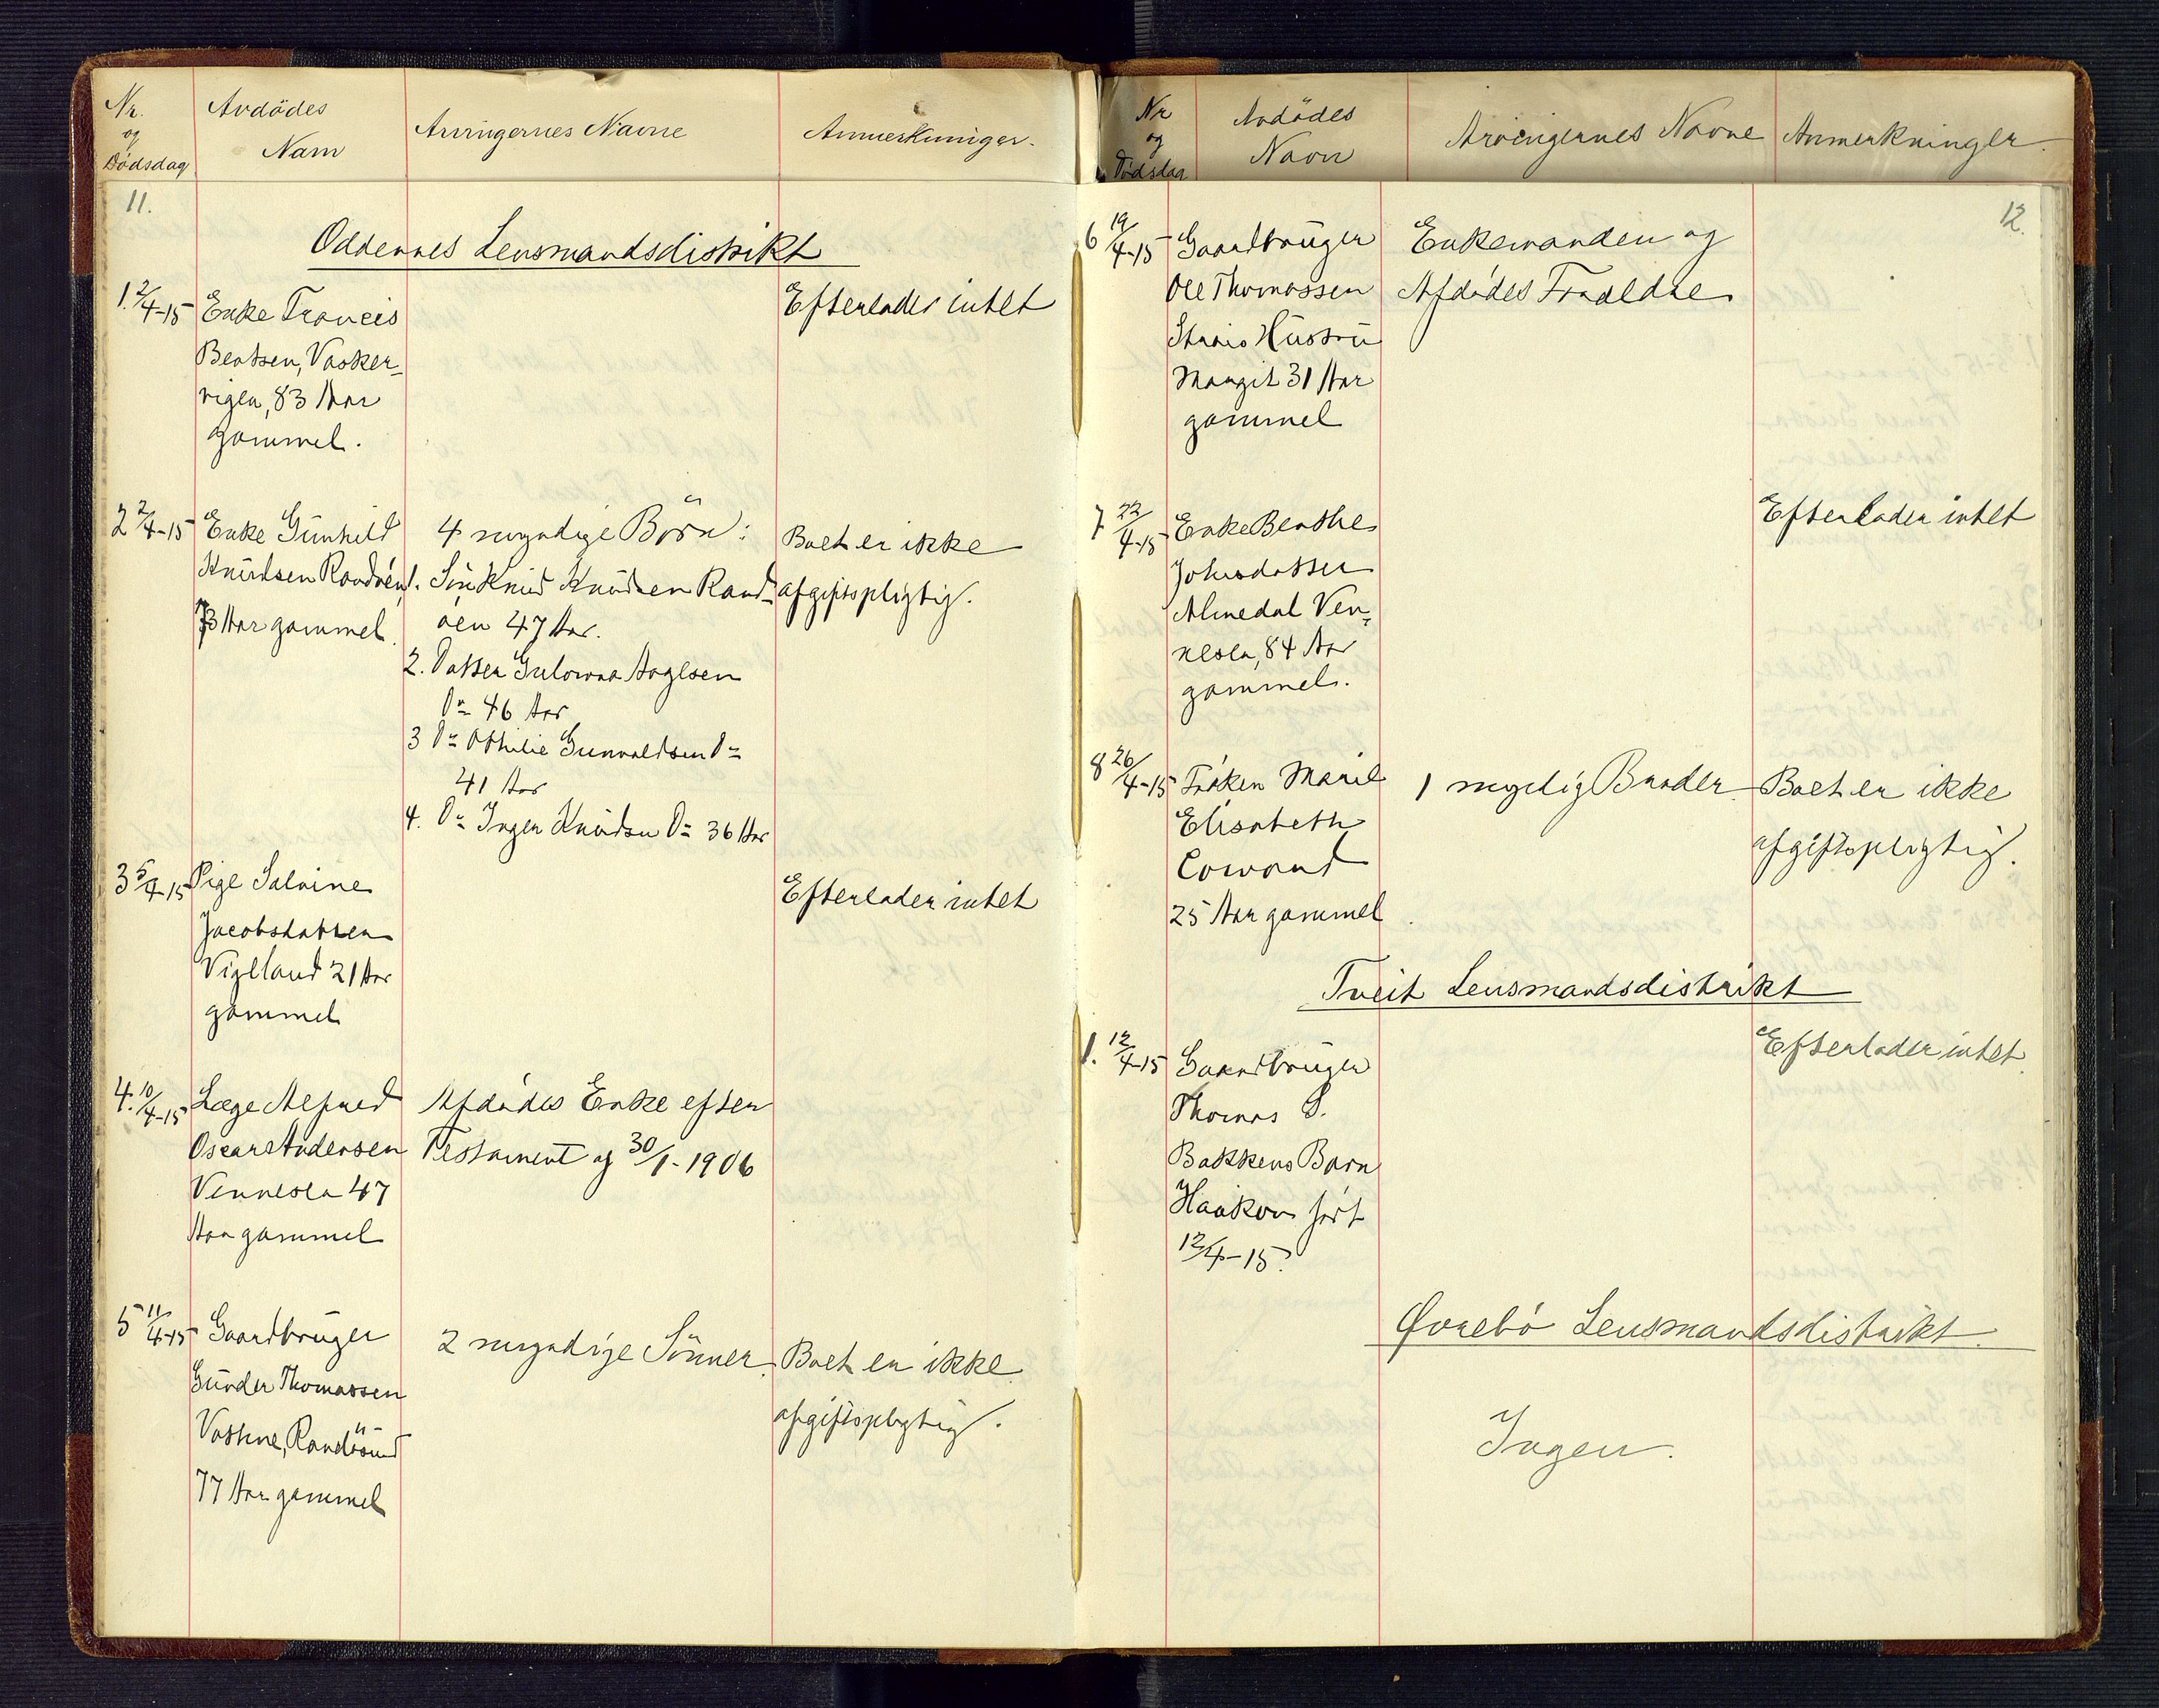 Nr.
og
Dödsdag
Avdödes
Navn
Arvingernes Navne
Anmerkninger.
11.
Oddernes Lensmandsdistrikt
1. 2/4-15
Enke Francis
Bentsen, Vasker-
vigen, 83 Aar
gammel.
Efterlader intet
2 2/4-15
Enke Gunhild
Knudsen Randøen
73 Aar gammel.
4 myndige Börn:
1. Sön Knud Knudsen Rand-
øen 47 Aar.
2. Datter Gulowna Aaglsen
Do 46 Aar
3 Do Othilie Gunvaldsen Do
41 Aar
4. Do Inger Knudsen Do 36 Aar
Boet er ikke
afgiftspligtig.
3 5/4-15
Pige Salvine
Jacobsdatter
Vigeland 21 Aar
gammel
Efterlader intet
4. 10/4-15
Læge Alfred
Oscar Andersen
Vennesla 47
Aar gammel
Afdödes Enke efter
Testament af 30/1-1906
5 11/4-15
Gaardbruger
Gunder Thomassen
Vatne, Randösund
77 Aar gammel
2 myndige Sönner.
Boet er ikke
afgiftspligtig.
Nr
og
Dödsdag
Avdödes
Navn
Arvingernes Navne
Anmerkninger.
12.
6 19/4-15
Gaardbruger
Ole Thomassen
Hustru
Margit 31 Aar
gammel
Enkemanden og
Afdödes Forældre
7 22/4-15
Enke Benthe
Johnsdatter
Almedal Ven-
nesla, 84 Aar
gammel.
Efterlader intet
8 26/4-15
Fröken Marie
Elisabeth
25 Aar gammel
1 myndig Broder
Boet er ikke
afgiftspligtig.
Tveit Lensmandsdistrikt
1. 12/4-15
Gaardbruger
Thomas S.
Bakkens Barn
Haakon født
12/4-15.
Efterlader intet.
Øvrebö Lensmandsdistrikt.
Ingen.